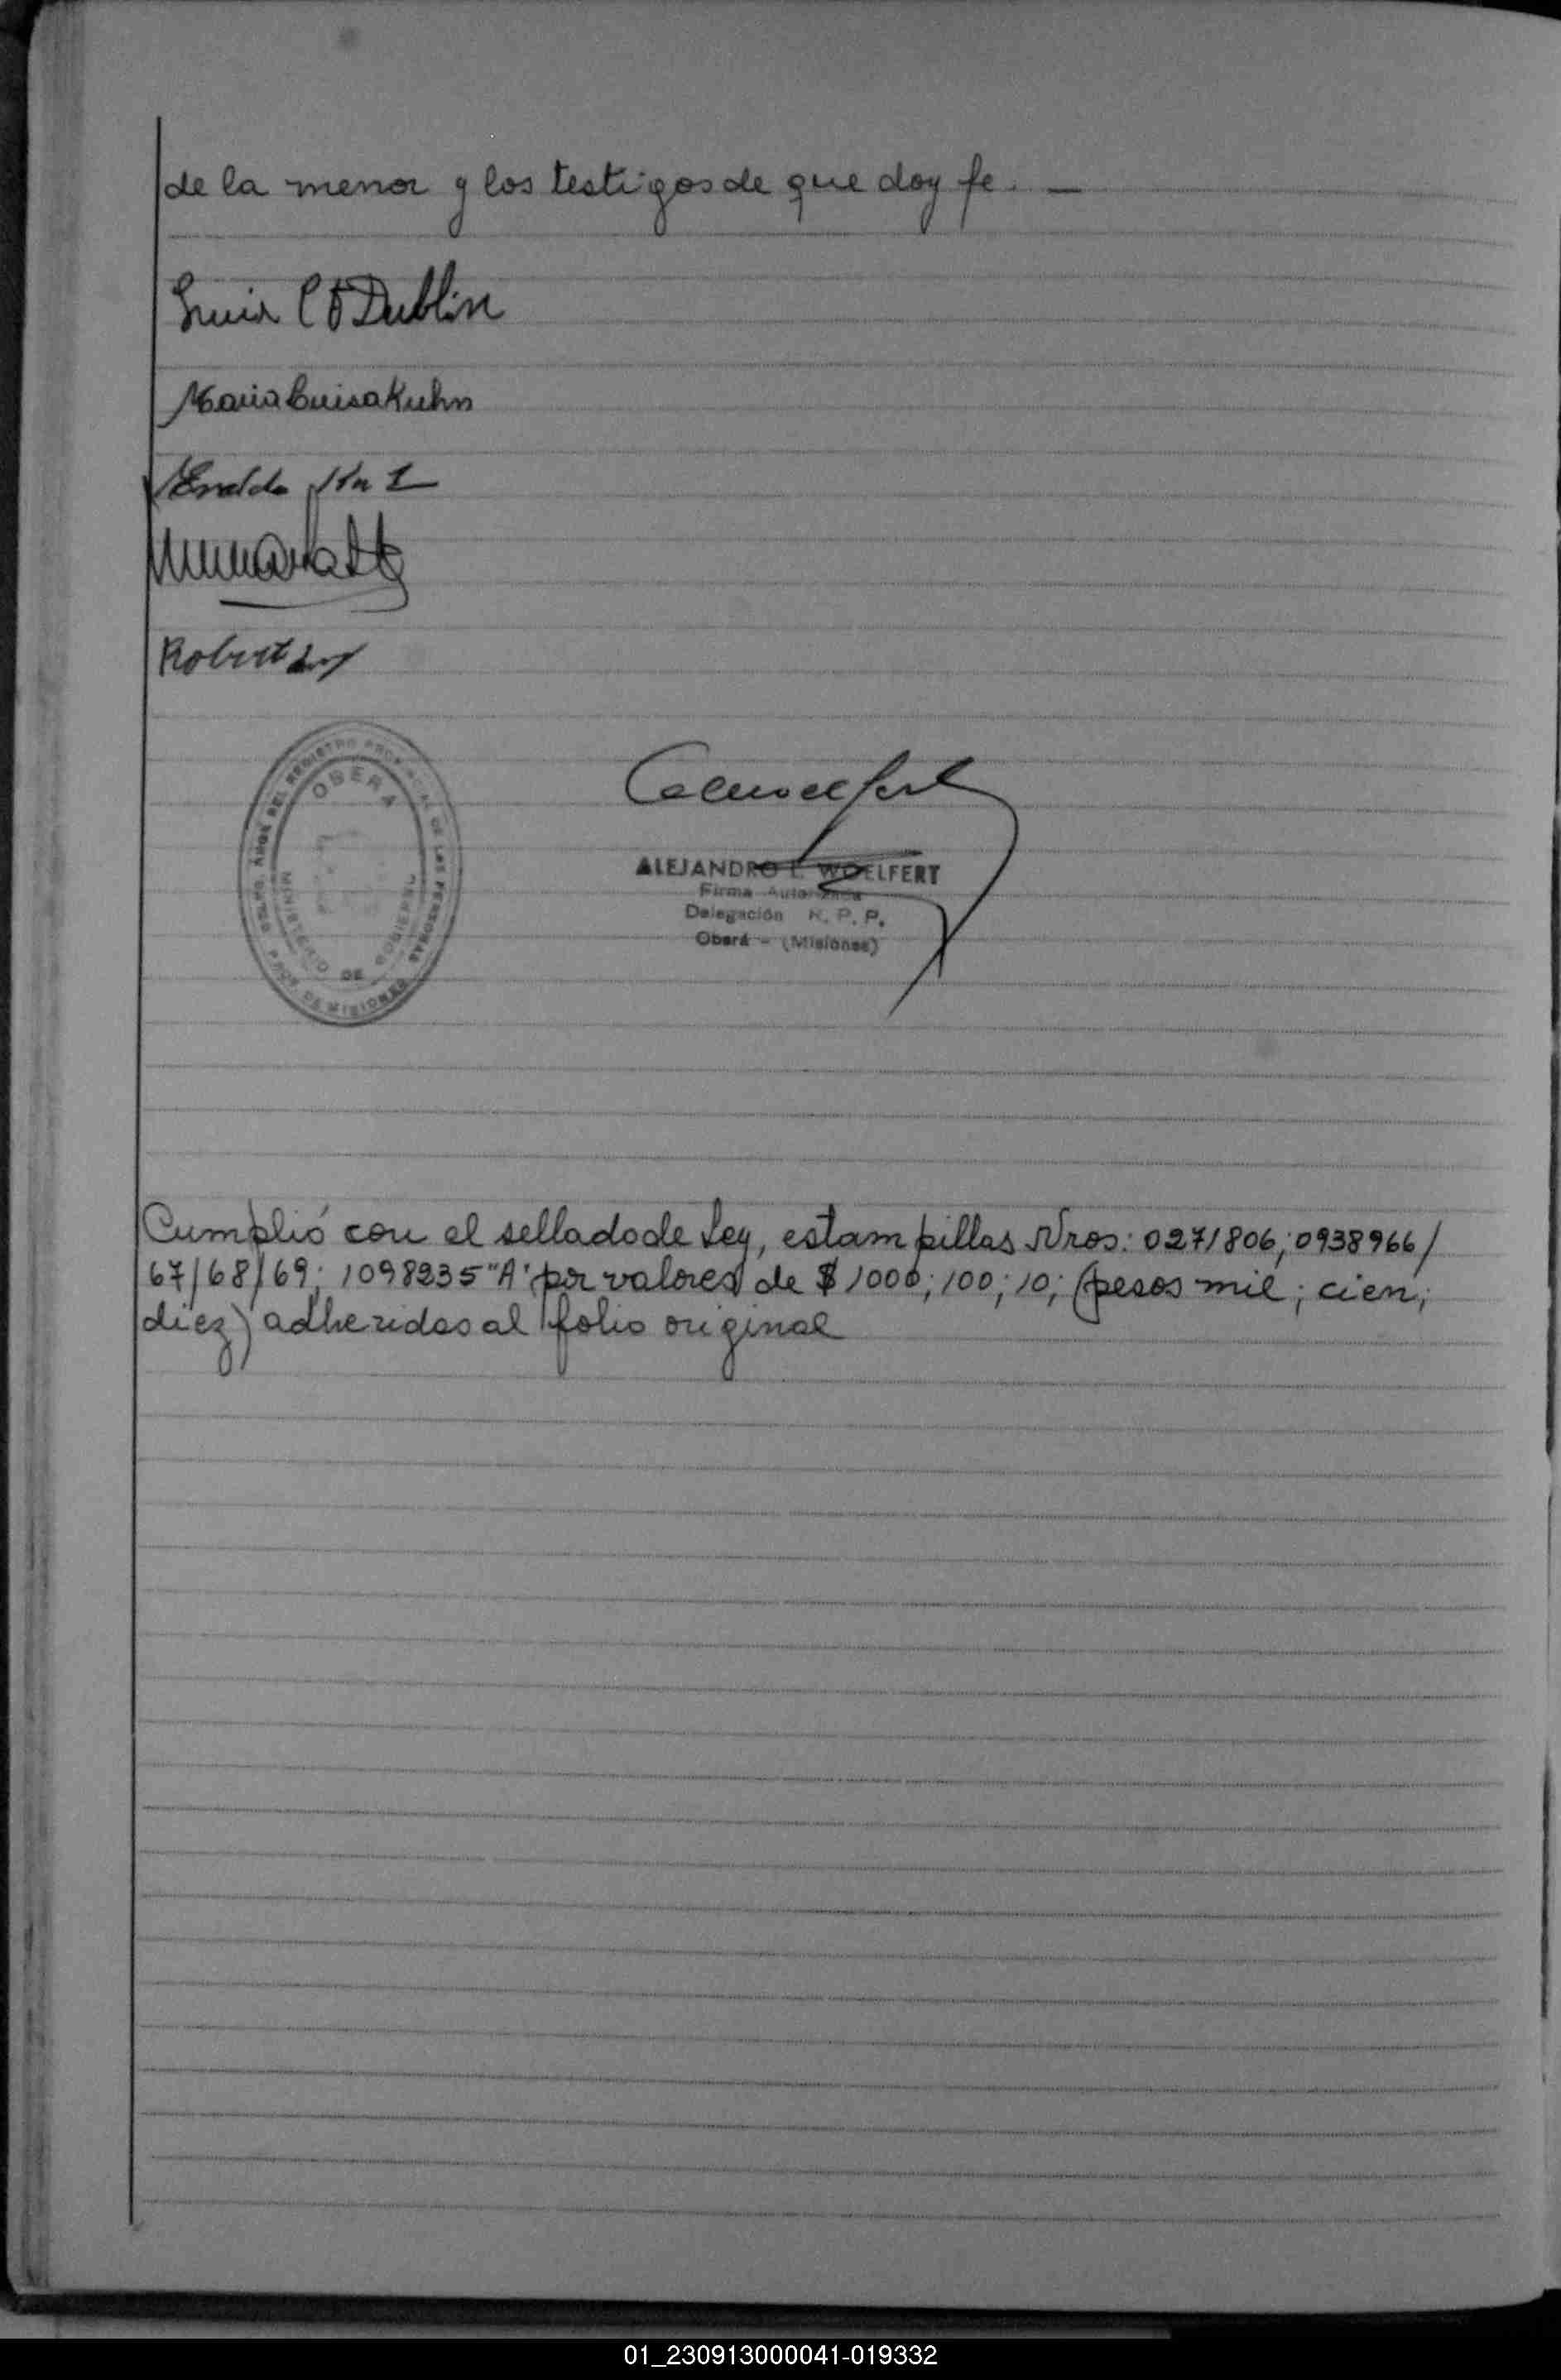 de la menor y los testigos de que doy fe. —
Dublin
Maria Luisa Kuhn
Robert
OBERA
MINISTERIO DE GOBIERNO
PROV. DE MISIONES
ALEJANDRO E. WOELFERT
Firma Autorizada
Delegación R. P. P.
Oberá - (Misiones)
Cumplió con el sellado de Ley, estampillas Nros: 0271806; 0938966/
67/68/69; 1098235 "A" por valores de $ 1000; 100; 10; (pesos mil; cien;
diez) adheridas al folio original
01_230913000041-019332